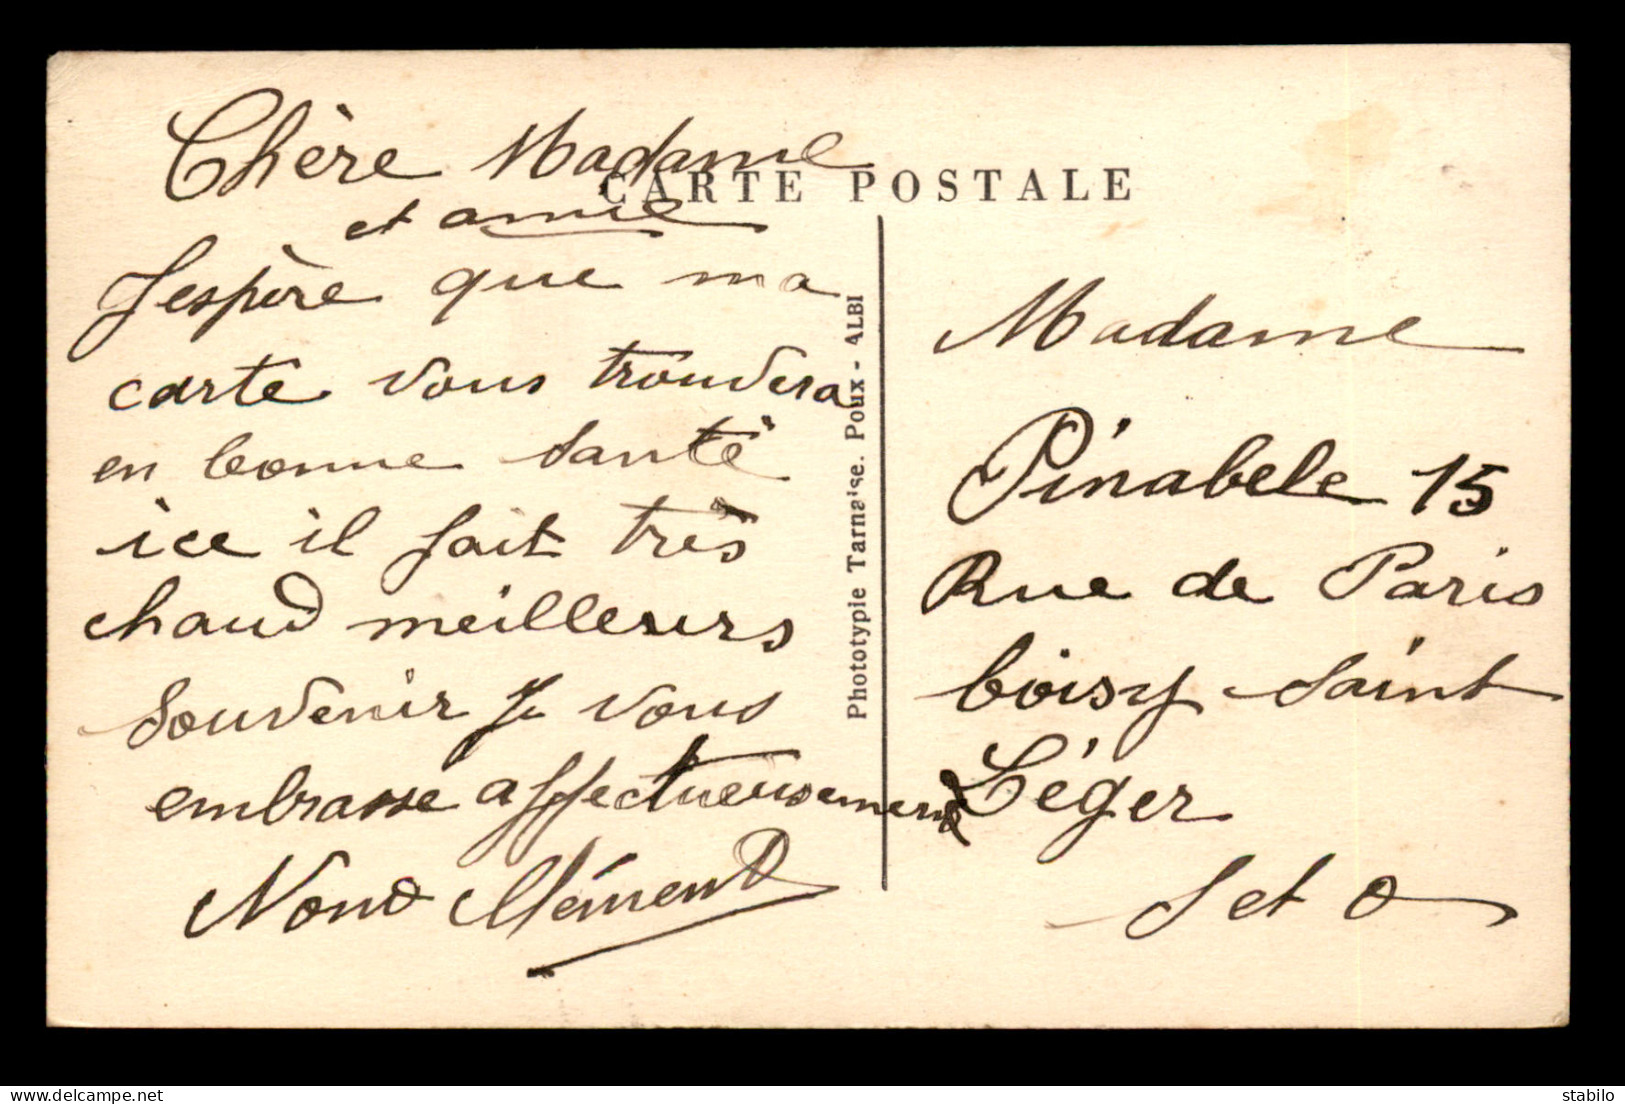 CARTE POSTALE
Chère Madame
et amie
J'espère que ma
carte vous trouvera
en bonne santé
ice il fait très
chaud meilleurs
souvenir Je vous
embrasse affectueusement
Clément
Phototypie Tarnaise. Poux - ALBI
Madame
Pinabele 15
Rue de Paris
boisy saint
Léger
S et O
stabilo